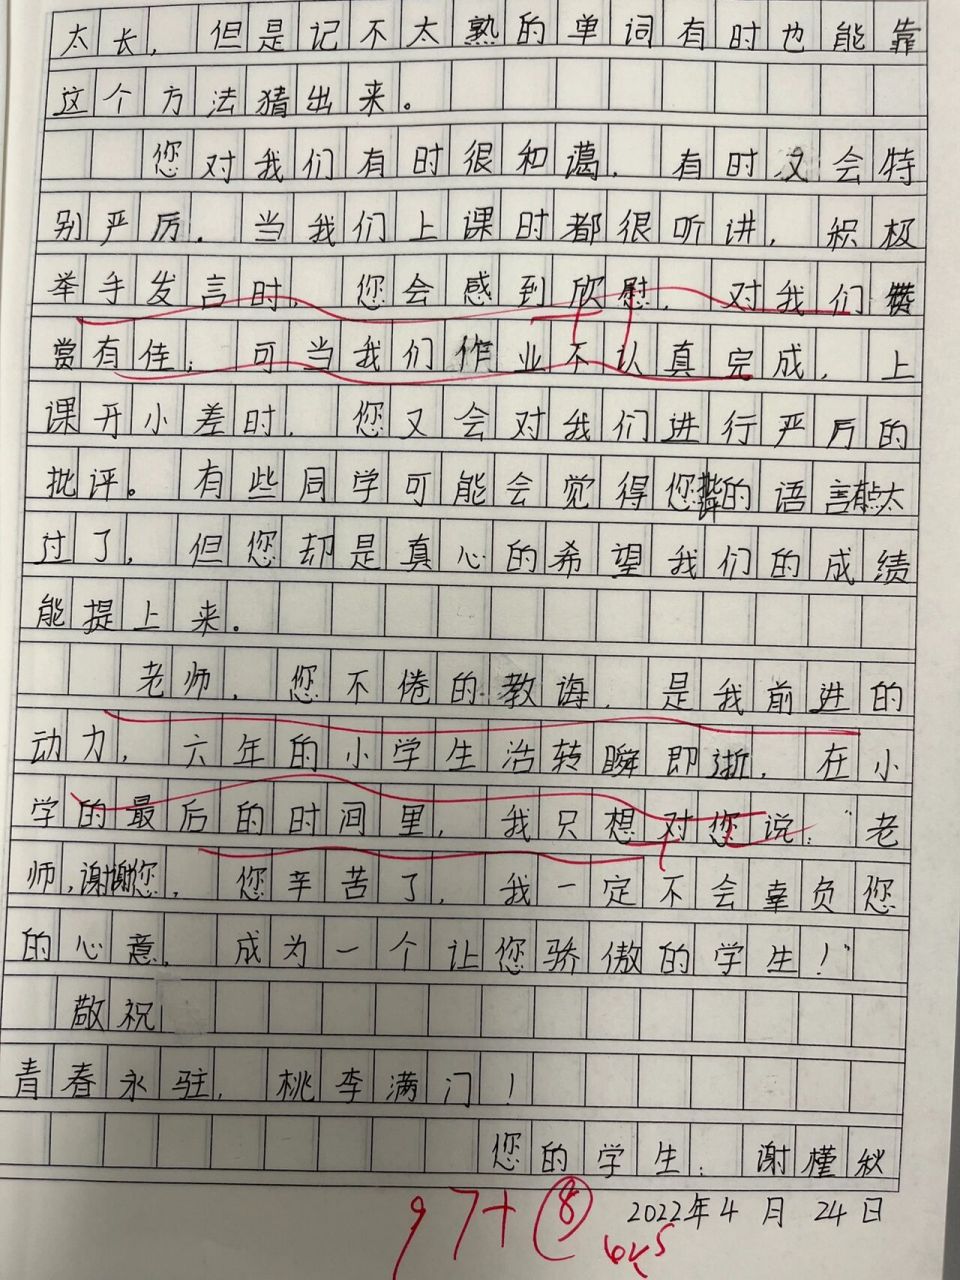 太长，但是记不太熟的单词有时也能靠
这个方法猜出来。
您对我们有时很和蔼，有时又会特
别严厉。当我们上课时都很听讲，积极
举手发言时，您会感到欣慰，对我们赞
赏有佳；可当我们作业不认真完成，上
课开小差时，您又会对我们进行严厉的
批评。有些同学可能会觉得您的语言有点太
过了，但您却是真心的希望我们的成绩
能提上来。
老师，您不倦的教诲，是我前进的
动力，六年的小学生活转瞬即逝，在小
学的最后的时间里，我只想对您说：“老
师，谢谢您，您辛苦了，我一定不会辜负您
的心意，成为一个让您骄傲的学生！”
敬祝
青春永驻，桃李满门！
您的学生：谢槿秋
2022年4月24日
97+⑧